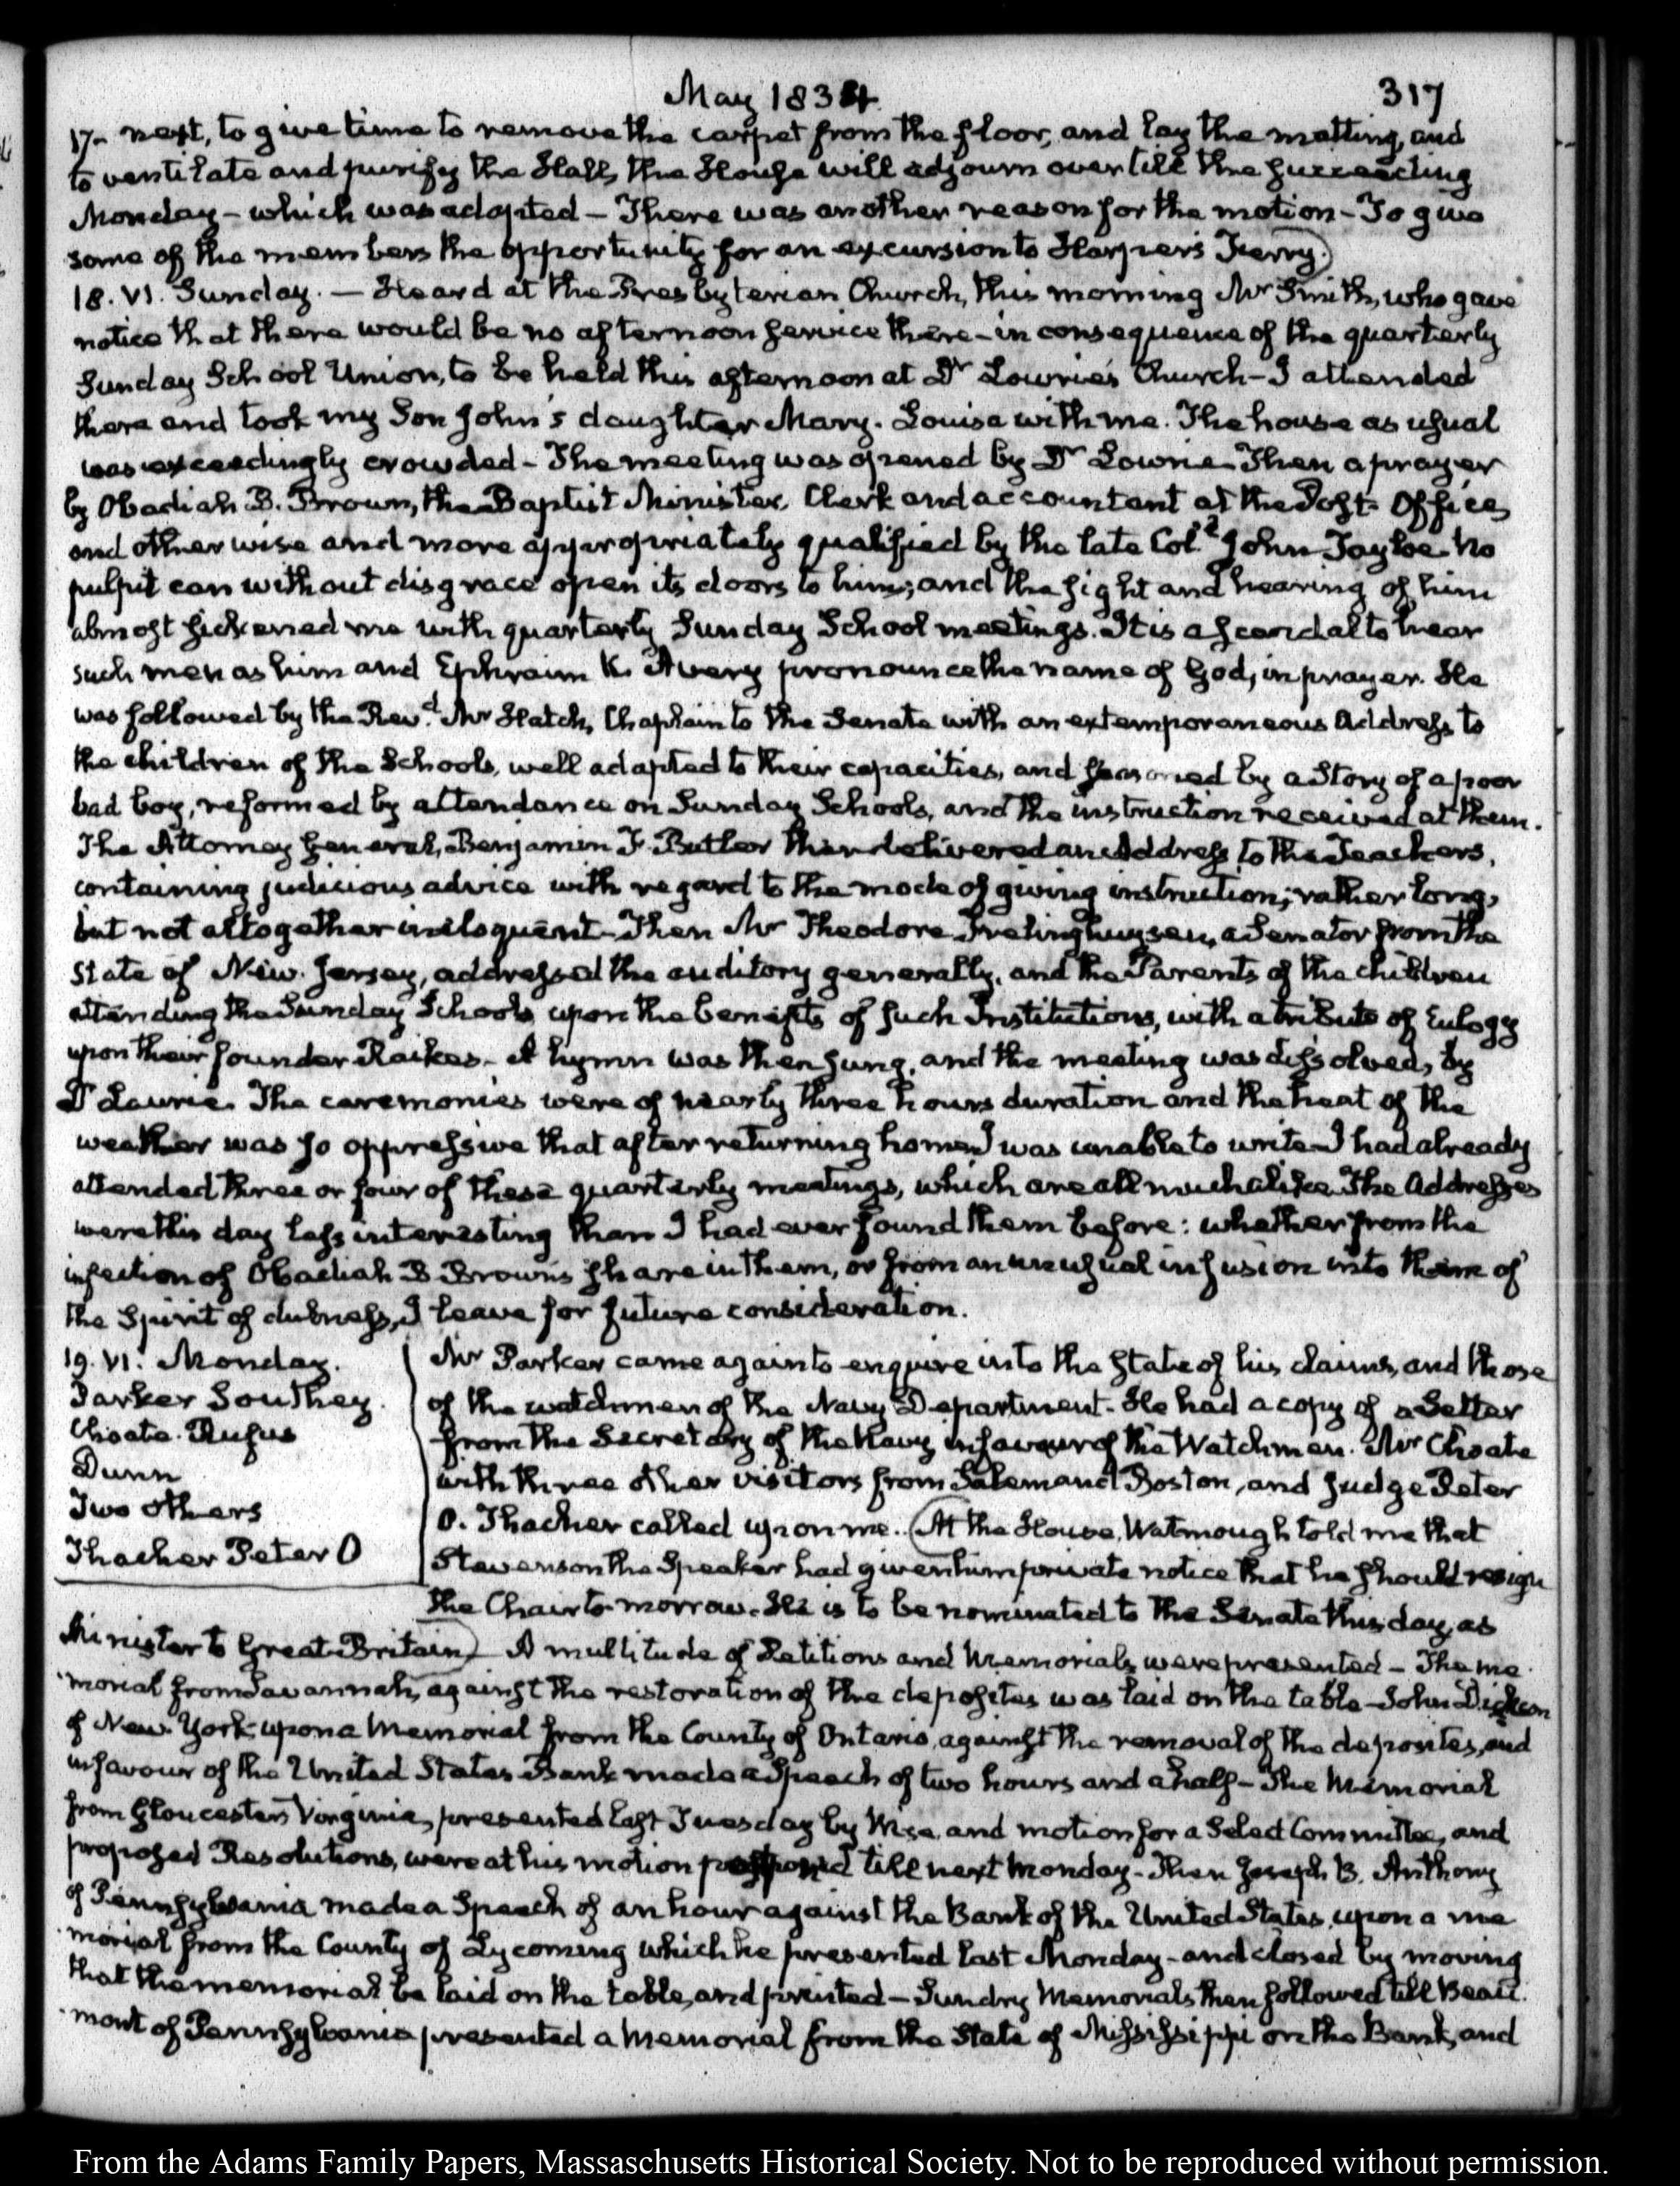 May 1834.
317
17- next, to give time to remove the carpet from the floor, and lay the matting, and
to ventilate and purify the Hall, the House will adjourn over till the succeeding
Monday - which was adopted - There was another reason for the motion - To give
some of the members the opportunity for an excursion to Harper's Ferry.)
18. VI. Sunday. — Heard at the Presbyterian Church, this morning Mr Smith, who gave
notice that there would be no afternoon service there - in consequence of the quarterly
Sunday School Union, to be held this afternoon at Dr Lowrie's Church - I attended
there and took my Son John's daughter Mary-Louisa with me. The house as usual
was exceedingly crowded - The meeting was opened by Dr Lowrie - Then a prayer
by Obadiah B. Brown, the Baptist Minister, Clerk and accountant at the Post-Office,
and otherwise and more appropriately qualified by the late Coll John Tayloe. No
pulpit can without disgrace open its doors to him; and the sight and hearing of him
almost sickened me with quarterly Sunday School meetings. It is a scandal to hear
such men as him and Ephraim K. Avery pronounce the name of God, in prayer. He
was followed by the Revd Mr Hatch, Chaplain to the Senate with an extemporaneous Address to
the children of the Schools, well adapted to their capacities, and seasoned by a Story of a poor
bad boy, reformed by attendance on Sunday Schools, and the instruction received at them.
The Attorney General, Benjamin F. Butler then delivered an Address to the Teachers,
containing judicious advice with regard to the mode of giving instruction; rather long,
but not altogether ineloquent - Then Mr Theodore Frelinghuysen, a Senator from the
State of New-Jersey, addressed the auditory generally, and the Parents of the children
attending the Sunday Schools upon the benefits of such Institutions, with a tribute of Eulogy
upon their founder Raikes - A hymn was then sung, and the meeting was dissolved, by
Dr Laurie. The ceremonies were of nearly three hours duration and the heat of the
weather was so oppressive that after returning home I was unable to write - I had already
attended three or four of these quarterly meetings, which are all much alike. The Addresses
were this day less interesting than I had ever found them before: whether from the
infection of Obadiah B Brown's share in them, or from an unusual infusion into them of
the Spirit of dulness, I leave for future consideration.
19. VI. Monday.
Parker Southey.
Choate. Rufus
Dunn
Two others
Thacher Peter O
Mr Parker came again to enquire into the State of his claims, and those
of the watchmen of the Navy Department. He had a copy of a Letter
from the Secretary of the Navy in favour of the Watchmen. Mr Choate
with three other visitors from Salem and Boston, and Judge Peter
O. Thacher called upon me. (At the House, Watmough told me that
Stevenson the Speaker had given him private notice that he should resign
the Chair to-morrow. He is to be nominated to the Senate this day, as
Minister to Great-Britain) A multitude of Petitions and Memorials were presented - The me-
morial from Savannah, against the restoration of the deposites was laid on the table - John Dickson
of New York upon a Memorial from the County of Ontario, against the removal of the deposites, and
in favour of the United States Bank made a Speech of two hours and a half - The Memorial
from Gloucester Virginia, presented last Tuesday by Wise, and motion for a Select Committee, and
proposed Resolutions, were at his motion postponed till next Monday - Then Joseph B. Anthony
of Pennsylvania made a Speech of an hour against the Bank of the United States, upon a me
morial from the County of Lycoming which he presented last Monday - and closed by moving
that the memorial be laid on the table, and printed - Sundry Memorials then followed till Beau-
mont of Pennsylvania presented a Memorial from the State of Mississippi on the Bank, and
From the Adams Family Papers, Massachusetts Historical Society. Not to be reproduced without permission.